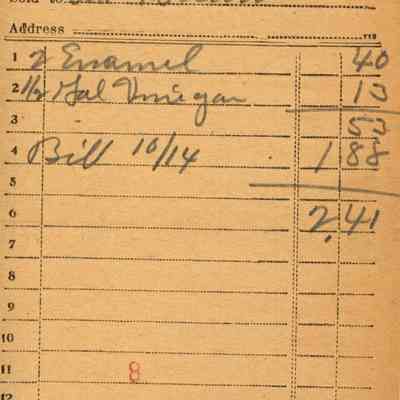 Sold to
Address 191
1 2 Enamel 40
2 1/2 Gal Vinegar 13
3 53
4 Bill 10/14 1 88
5
6 2.41
7
8
9
10
11 8
12